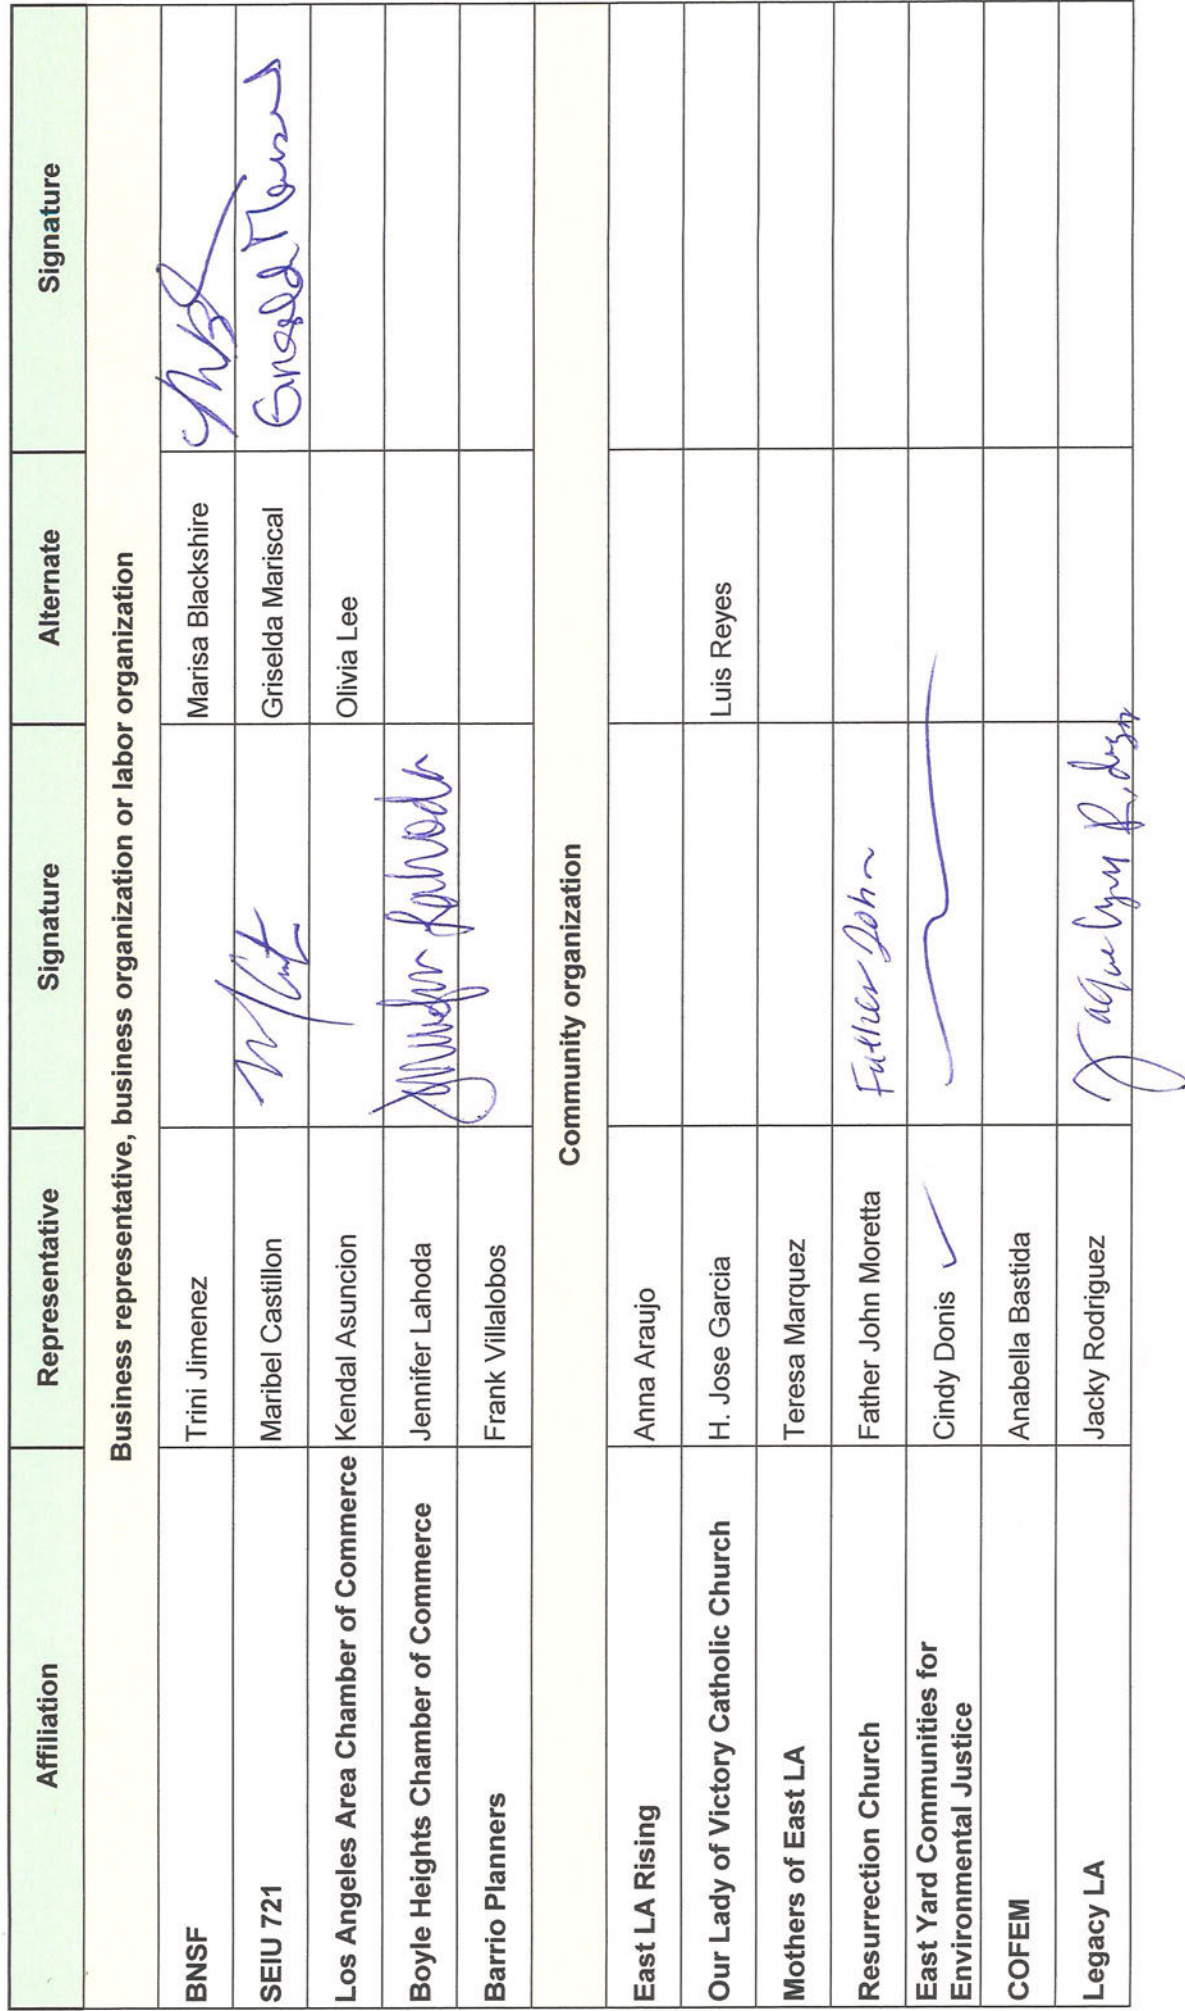 Affiliation Representative Signature Alternate Signature
Business representative, business organization or labor organization
BNSF Trini Jimenez Marisa Blackshire
SEIU 721 Maribel Castillon Griselda Mariscal
Los Angeles Area Chamber of Commerce Kendal Asuncion Olivia Lee
Boyle Heights Chamber of Commerce Jennifer Lahoda Jennifer Lahoda
Barrio Planners Frank Villalobos
Community organization
East LA Rising Anna Araujo
Our Lady of Victory Catholic Church H. Jose Garcia Luis Reyes
Mothers of East LA Teresa Marquez
Resurrection Church Father John Moretta Father John
East Yard Communities for
Environmental Justice Cindy Donis ✓
COFEM Anabella Bastida
Legacy LA Jacky Rodriguez